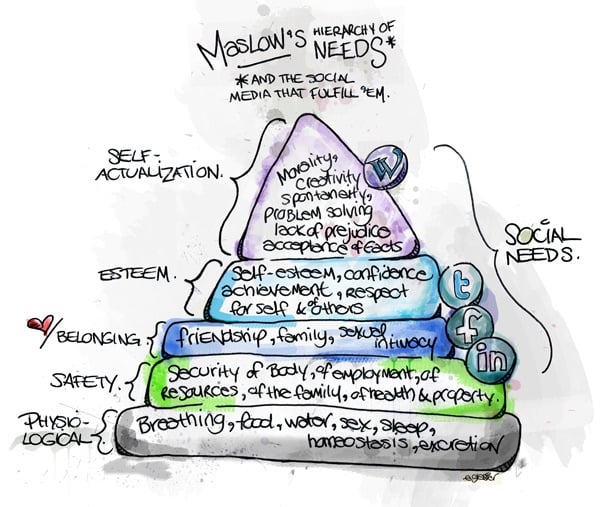 MASLOW'S HIERARCHY OF NEEDS*
*AND THE SOCIAL
MEDIA THAT FULFILL 'EM.
SELF-
ACTUALIZATION.
Morality,
Creativity
spontaneity,
PROBLEM SOLVING
lack of prejudice
acceptance of facts
W
SOCIAL
NEEDS.
ESTEEM.
Self-esteem, confidence
achievement, respect
for self & of others
t
BELONGING.
friendship, family, sexual
intimacy
f
in
SAFETY.
Security of Body, of employment, of
resources, of the family, of health & property.
PHYSIO-
LOGICAL
Breathing, food, water, sex, sleep,
homeostasis, excretion